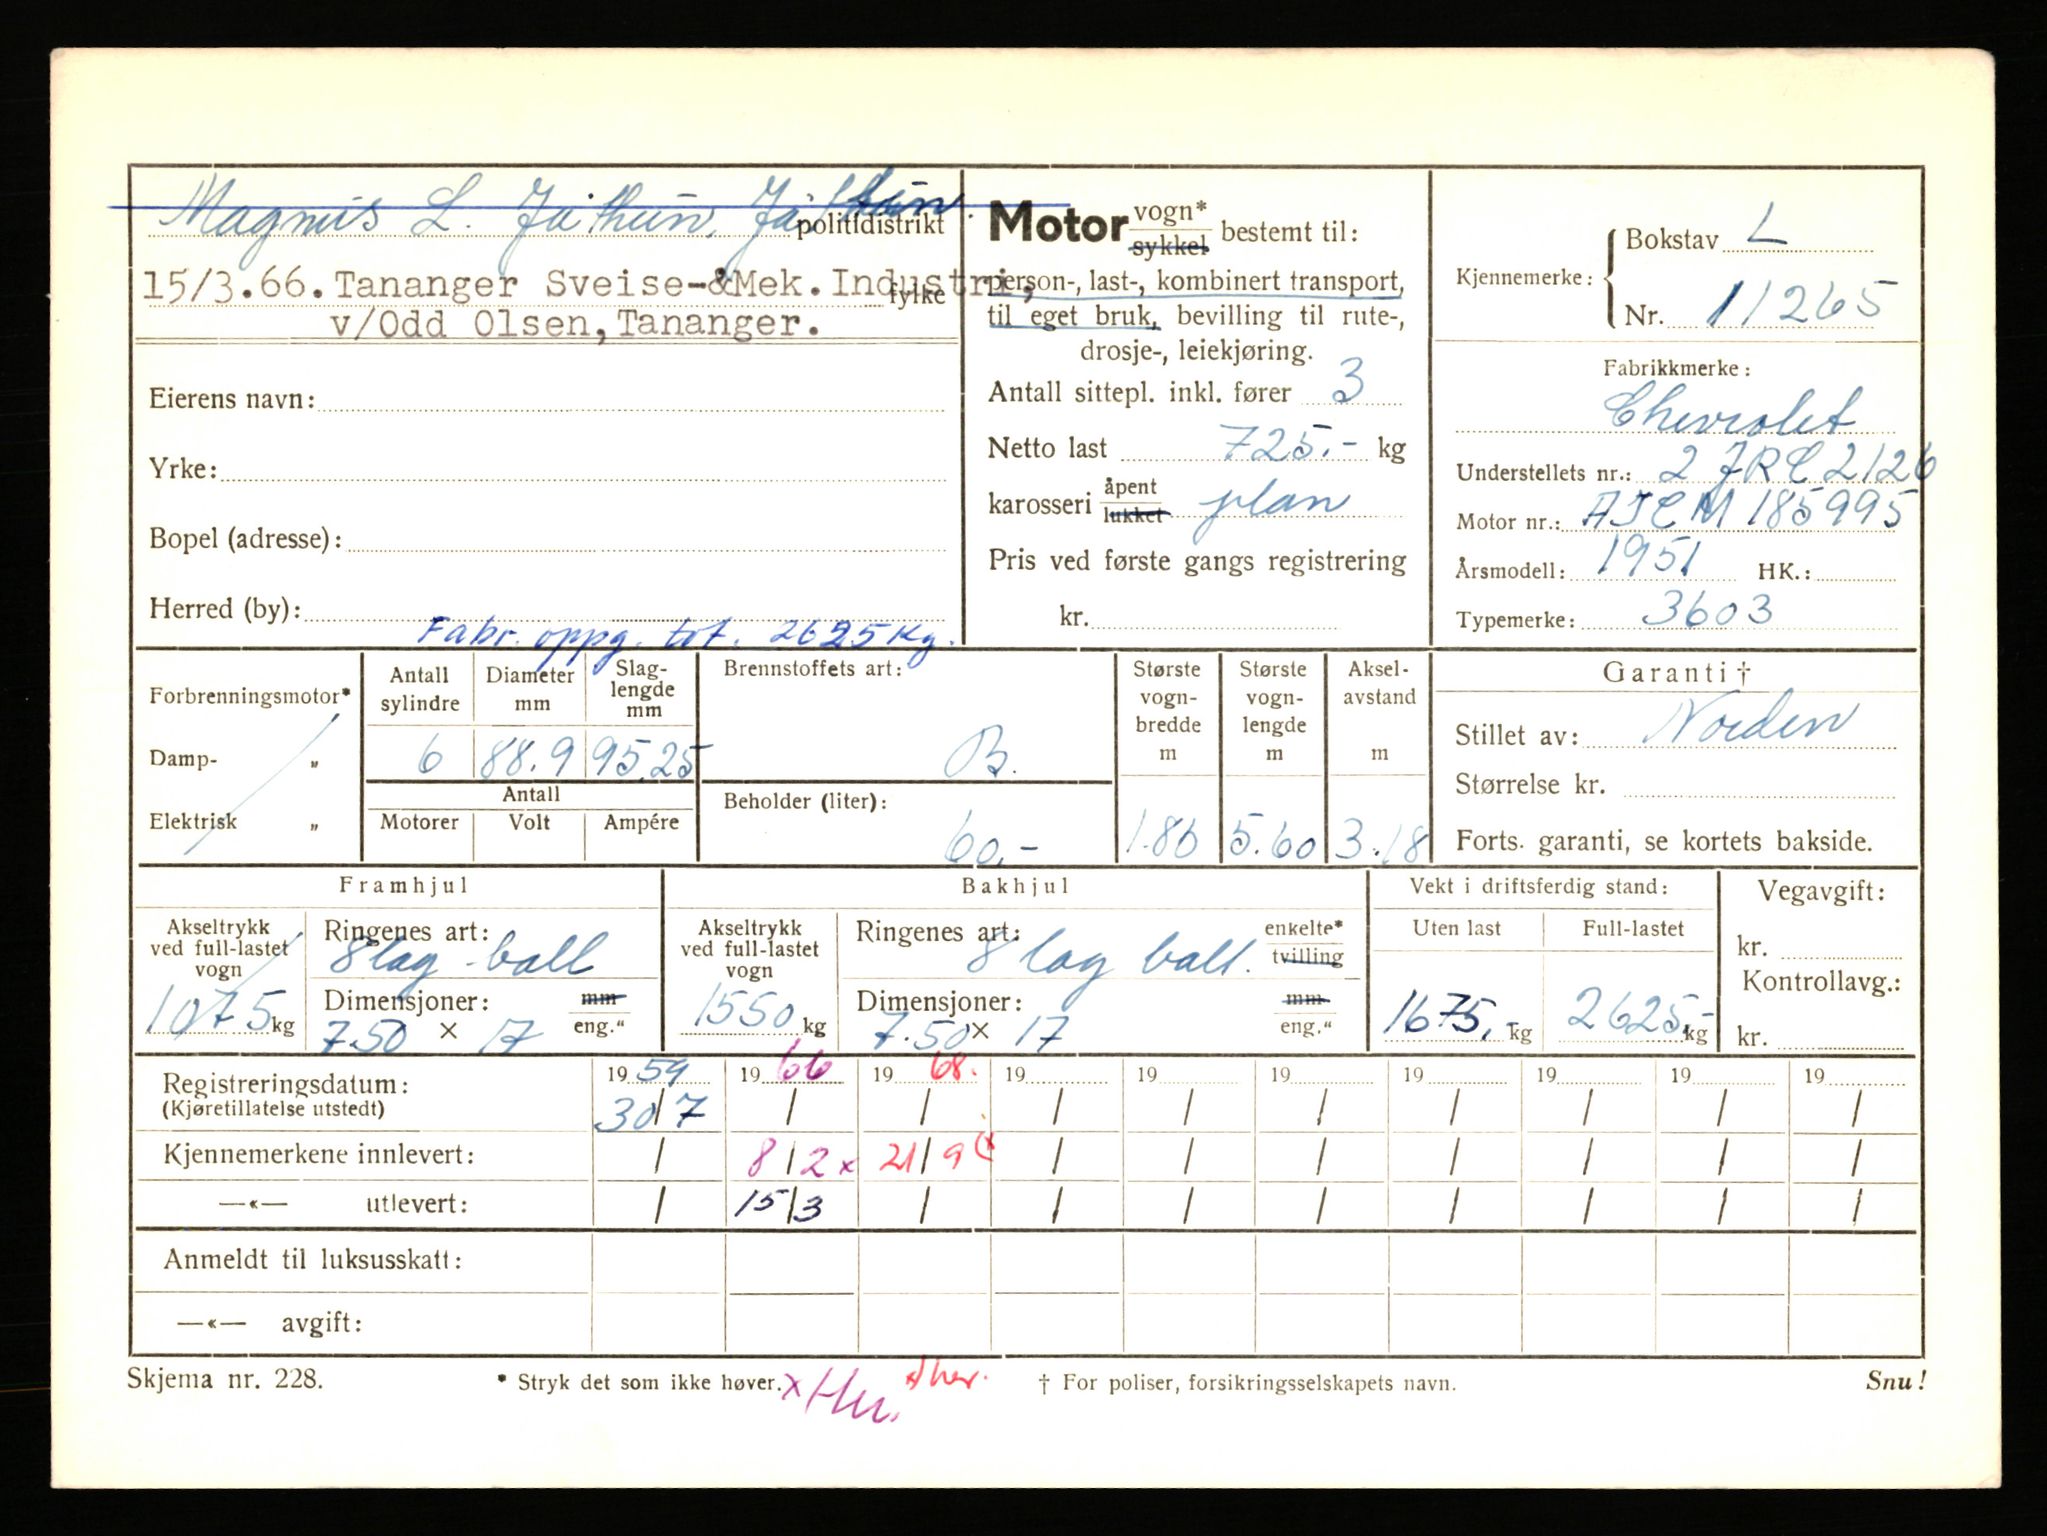 Magnus L. Jåthun, Jåthun.
politidistrikt
15/3.66. Tananger Sveise-&Mek. Industri,
fylke
v/Odd Olsen, Tananger.
Eierens navn:
Yrke:
Bopel (adresse):
Herred (by):
Fabr. oppg. tot. 2625 Kg.
Motor vogn* sykkel bestemt til:
person-, last-, kombinert transport,
til eget bruk, bevilling til rute-,
drosje-, leiekjøring.
Antall sittepl. inkl. fører 3
Netto last 725.- kg
karosseri åpent lukket plan
Pris ved første gangs registrering
kr.
Kjennemerke:
Bokstav L
Nr. 11265
Fabrikkmerke:
Chevrolet
Understellets nr.: 2 JRC 2126
Motor nr.: AJCM 185995
Årsmodell: 1951 HK.:
Typemerke: 3603
Forbrenningsmotor*
Damp- „
Elektrisk „
Antall sylindre
Diameter mm
Slag-lengde mm
6 88.9 95.25
Antall
Motorer Volt Ampére
Brennstoffets art:
B.
Beholder (liter):
60.-
Største vogn-bredde m
1.80
Største vogn-lengde m
5.60
Aksel-avstand m
3.18
Garanti †
Stillet av: Norden
Størrelse kr.
Forts. garanti, se kortets bakside.
Framhjul
Akseltrykk ved full-lastet vogn
1075 kg
Ringenes art:
8 lag ball
Dimensjoner: mm eng."
7.50 × 17
Bakhjul
Akseltrykk ved full-lastet vogn
1550 kg
Ringenes art: enkelte* tvilling
8 lag ball.
Dimensjoner: mm eng."
7.50 × 17
Vekt i driftsferdig stand:
Uten last Full-lastet
1675.- kg 2625.- kg
Vegavgift:
kr.
Kontrollavg.:
kr.
Registreringsdatum: 19 59 19 66 19 68. 19 19 19 19 19 19 19
(Kjøretillatelse utstedt) 30/7 / / / / / / / / /
Kjennemerkene innlevert: / 8/2 x 21/9 (x / / / / / / /
—«— utlevert: / 15/3 / / / / / / / /
Anmeldt til luksusskatt:
—«— avgift:
Skjema nr. 228.
* Stryk det som ikke høver.
† For poliser, forsikringsselskapets navn.
Snu!